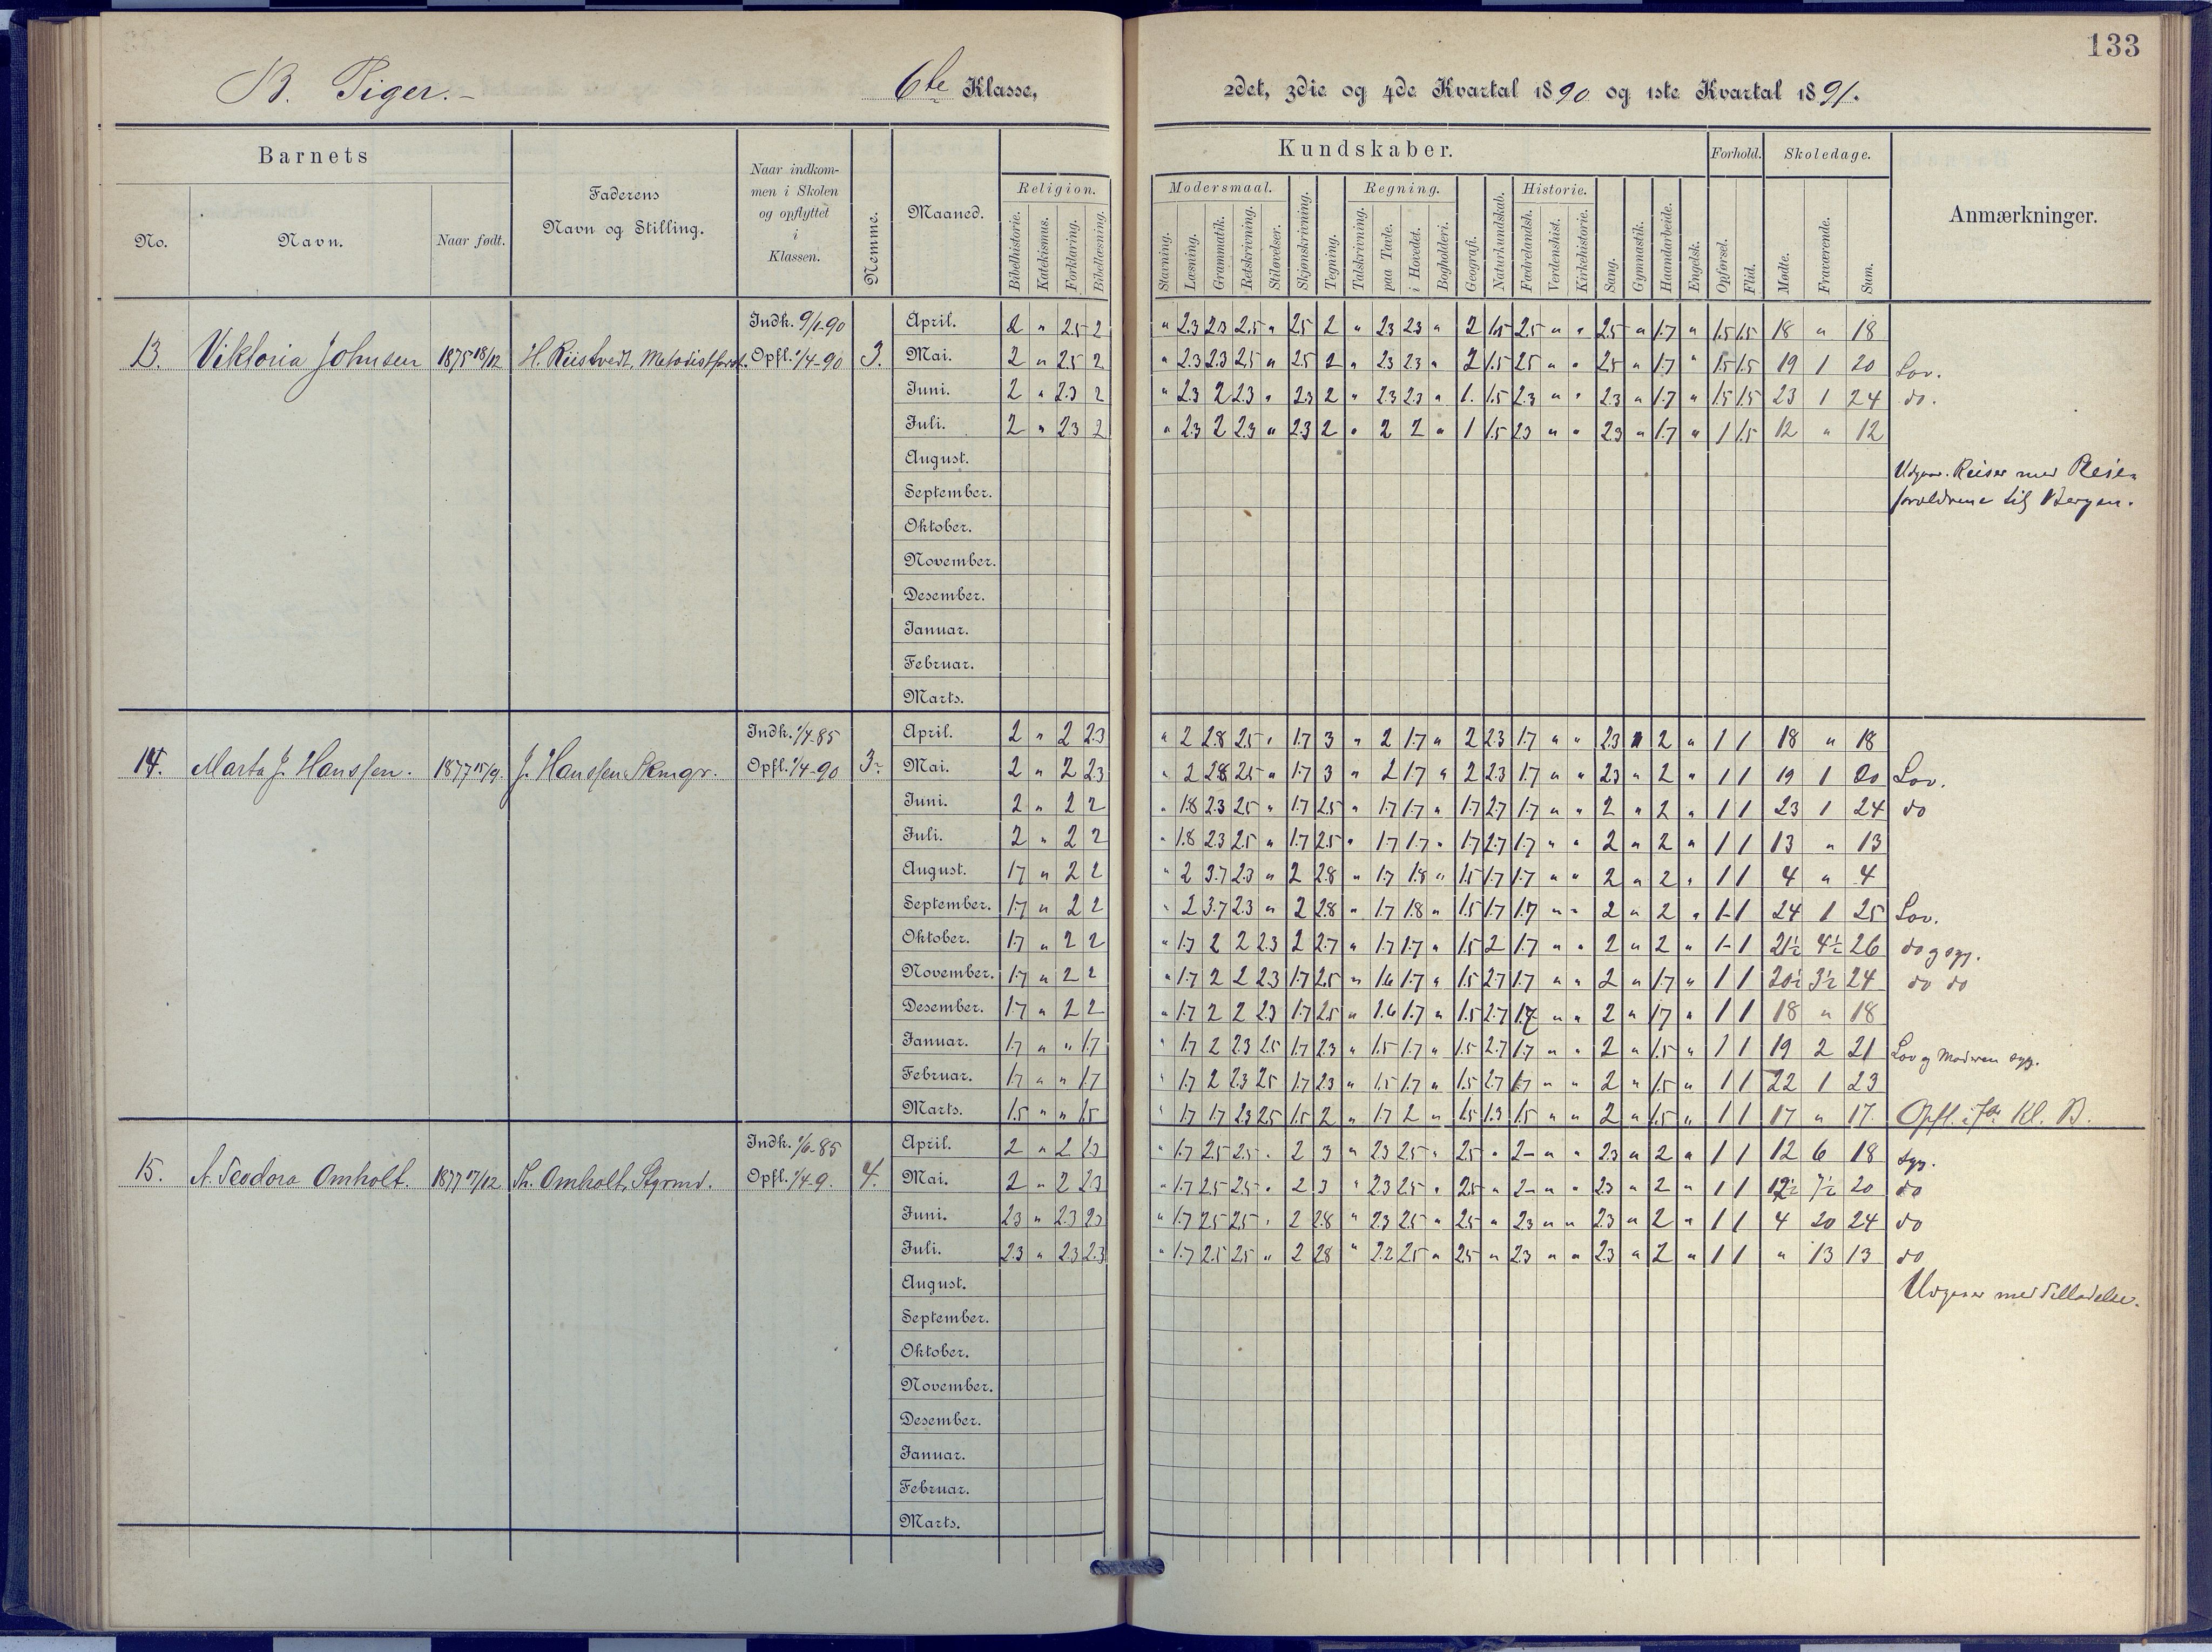 133
B. Piger.- 6te Klasse, 2det, 3die og 4de Kvartal 1890 og 1ste Kvartal 1891.
Barnets
No. Navn. Naar født.
Faderens
Navn og Stilling.
Naar indkom-
men i Skolen
og opflyttet
i
Klassen.
Nemme.
Maaned.
Kundskaber.
Religion.
Bibelhistorie. Katekismus. Forklaring. Bibellæsning.
Modersmaal.
Stavning. Læsning. Grammatik. Retskrivning. Stiløvelser.
Skjønskrivning. Tegning.
Regning.
Talskrivning. paa Tavle. i Hovedet. Bogholderi.
Geografi. Naturkundskab.
Historie.
Fædrelandsh. Verdenshist. Kirkehistorie.
Sang. Gymnastik. Haandarbeide. Engelsk.
Forhold.
Opførsel. Flid.
Skoledage.
Mødte. Fraværende. Sum.
Anmærkninger.
13. Viktoria Johnsen 1875 18/12 H. Riistvedt, Metodistforst. Indk. 9/1-90 Opfl. 1/4-90 3.
April. 2 " 2.5 2 " 2.3 2.3 2.5 " 2.5 2 " 2.3 2.3 " 2 1.5 2.5 " " 2.5 " 1.7 " 1.5 1.5 18 " 18
Mai. 2 " 2.5 2 " 2.3 2.3 2.5 " 2.5 2 " 2.3 2.3 " 2 1.5 2.5 " " 2.5 " 1.7 " 1.5 1.5 19 1 20 Lov.
Juni. 2 " 2.3 2 " 2.3 2 2.3 " 2.3 2 " 2.3 2.3 " 1. 1.5 2.3 " " 2.3 " 1.7 " 1.5 1.5 23 1 24 do.
Juli. 2 " 2.3 2 " 2.3 2 2.3 " 2.3 2 " 2 2 " 1 1.5 2.3 " " 2.3 " 1.7 " 1 1.5 12 " 12
August.
Udgaar. Reiser med Pleie-
September.
forældrene til Bergen.
Oktober.
November.
Desember.
Januar.
Februar.
Marts.
14. Marta J. Hanssen. 1877 15/9. J. Hanssen Skmgr. Indk. 1/4-85 Opfl. 1/4-90 3-
April. 2 " 2 2.3 " 2 2.8 2.5 " 1.7 3 " 2 1.7 " 2 2.3 1.7 " " 2.3 " 2 " 1 1 18 " 18
Mai. 2 " 2 2.3 " 2 2.8 2.5 " 1.7 3 " 2 1.7 " 2 2.3 1.7 " " 2.3 " 2 " 1 1 19 1 20 Lov.
Juni. 2 " 2 2 " 1.8 2.3 2.5 " 1.7 2.5 " 1.7 1.7 " 1.7 2.7 1.7 " " 2 " 2 " 1 1 23 1 24 do
Juli. 2 " 2 2 " 1.8 2.3 2.5 " 1.7 2.5 " 1.7 1.7 " 1.7 2.7 1.7 " " 2 " 2 " 1 1 13 " 13
August. 1.7 " 2 2 " 2 3.7 2.3 " 2 2.8 " 1.7 1.8 " 1.5 1.7 1.7 " " 2 " 2 " 1 1 4 " 4
September. 1.7 " 2 2 " 2 3.7 2.3 " 2 2.8 " 1.7 1.8 " 1.5 1.7 1.7 " " 2 " 2 " 1- 1 24 1 25 Lov.
Oktober. 1.7 " 2 2 " 1.7 2 2 2.3 2 2.7 " 1.7 1.7 " 1.5 2 1.7 " " 2 " 2 " 1- 1 21½ 4½ 26 do g syg.
November. 1.7 " 2 2 " 1.7 2 2 2.3 1.7 2.5 " 1.6 1.7 " 1.5 2.7 1.7 " " 2 " 1.7 " 1 1 20½ 3½ 24 do do
Desember. 1.7 " 2 2 " 1.7 2 2 2.3 1.7 2.5 " 1.6 1.7 " 1.5 2.7 1.7 " " 2 " 1.7 " 1 1 18 " 18
Januar. 1.7 " " 1.7 " 1.7 2 2.3 2.5 1.7 2.3 " 1.5 1.7 " 1.5 2.7 1.7 " " 2 " 1.5 " 1 1 19 2 21 Lov g Moderen syg.
Februar. 1.7 " " 1.7 " 1.7 2 2.3 2.5 1.7 2.3 " 1.5 1.7 " 1.5 2.7 1.7 " " 2 " 1.5 " 1 1 22 1 23
Marts. 1.5 " " 1.5 " 1.7 1.7 2.3 2.5 1.5 2 " 1.7 2 " 1.5 1.3 1.5 " " 2 " 1.5 " 1 1 17 " 17. Opfl. i 7de Kl. B.
15. A. Teodora Omholt. 1877 17/12 Th. Omholt, Styrmd. Indk. 1/6-85 Opfl. 1/4-9. 4.
April. 2 " 2 2.3 " 1.7 2.5 2.5 " 2 3 " 2.3 2.5 " 2.5 " 2- " " 2.3 " 2 " 1 1 12 6 18 Syg.
Mai. 2 " 2 2.3 " 1.7 2.5 2.5 " 2 3 " 2.3 2.5 " 2.5 " 2- " " 2.3 " 2 " 1 1 12½ 7½ 20 do
Juni. 2.3 " 2.3 2.3 " 1.7 2.5 2.5 " 2 2.8 " 2.3 2.5 " 2.5 " 2.3 " " 2.3 " 2 " 1 1 4 20 24 do
Juli. 2.3 " 2.3 2.3 " 1.7 2.5 2.5 " 2 2.8 " 2.2 2.5 " 2.5 " 2.3 " " 2.3 " 2 " 1 1 " 13 13 do
August. Udgaar med Tilladelse.
September.
Oktober.
November.
Desember.
Januar.
Februar.
Marts.